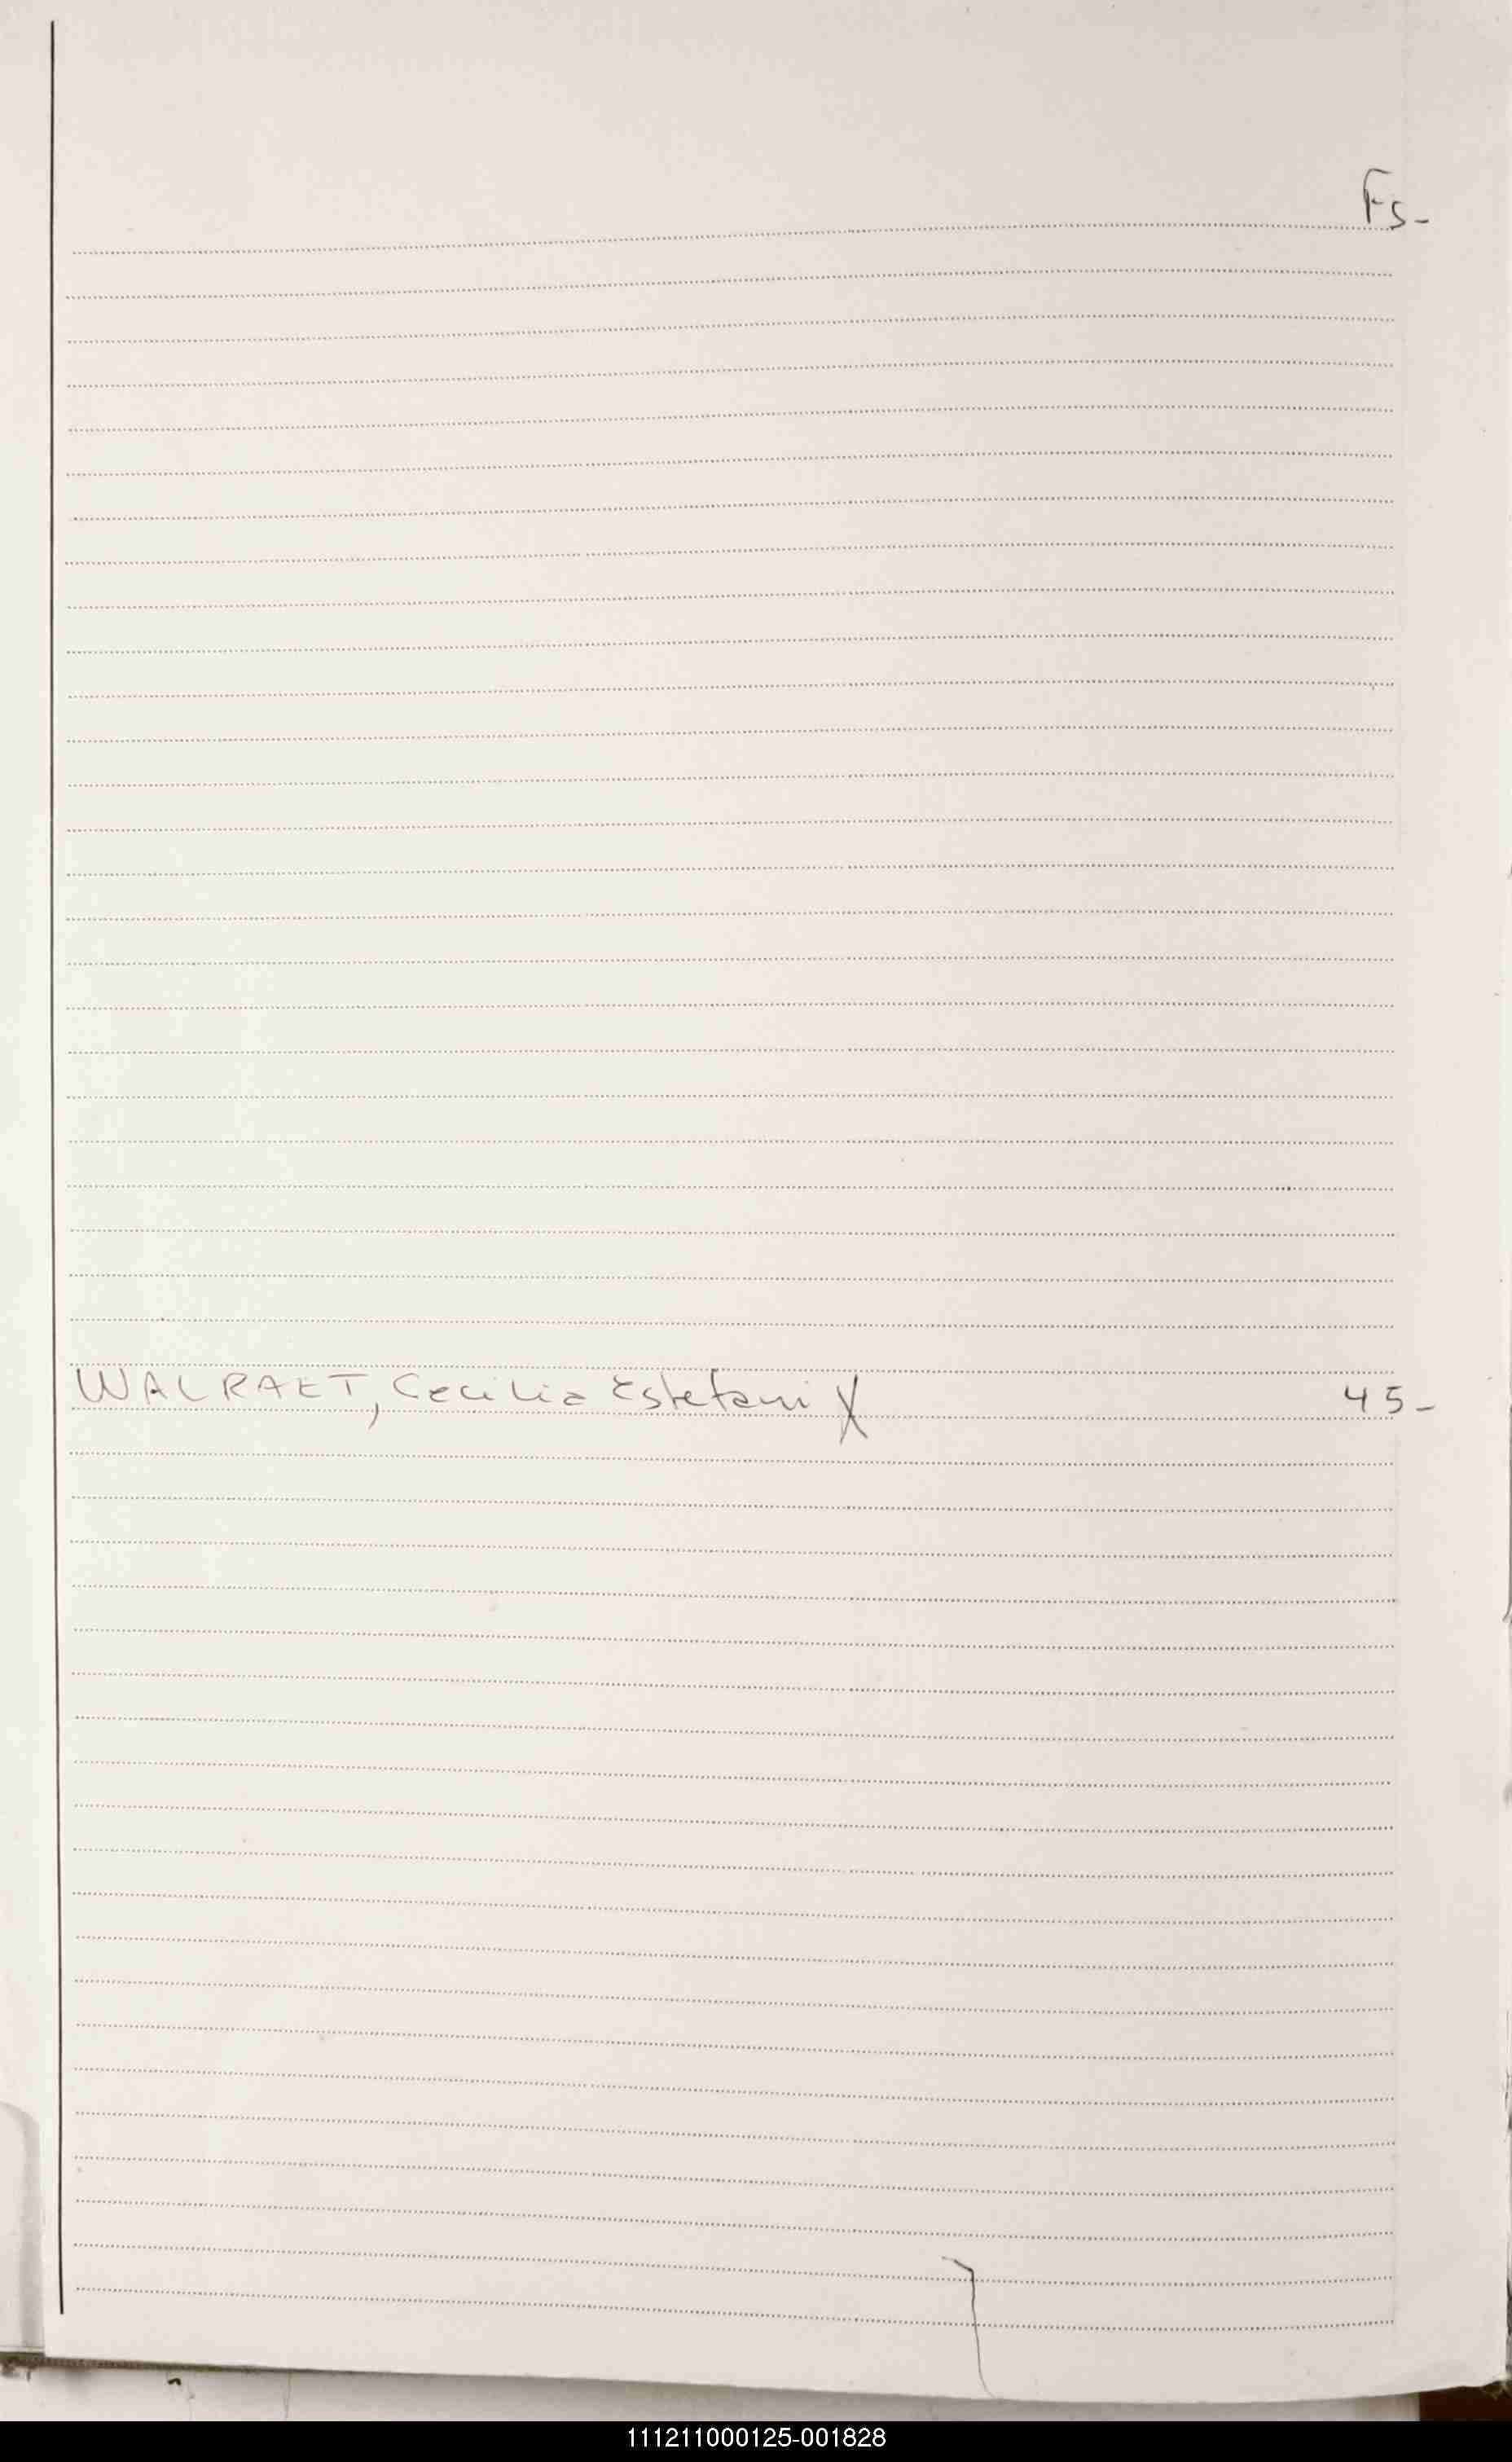 Fs-
WALRAET, Cecilia Estefani X 45-
111211000125-001828